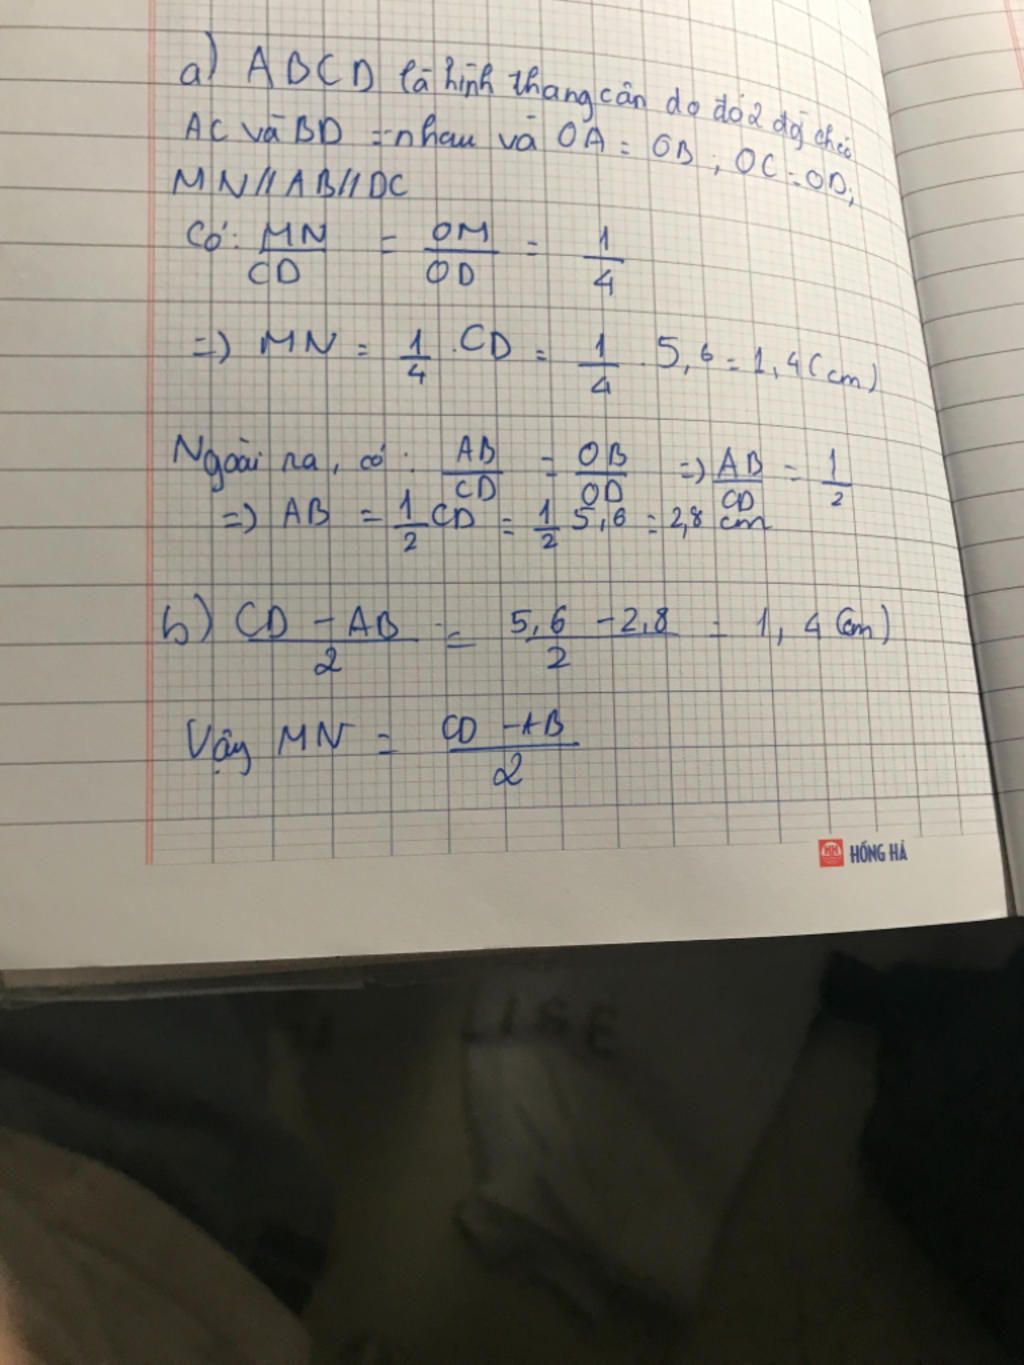 a) ABCD là hình thang cân do đó 2 đg chéo
AC và BD = nhau và OA = OB ; OC = OD ;
MN // AB // DC
Có : MN/CD = OM/OD = 1/4
=> MN = 1/4 . CD = 1/4 . 5,6 = 1,4 (cm)
Ngoài ra, có : AB/CD = OB/OD => AB/CD = 1/2
=> AB = 1/2 CD = 1/2 5,6 = 2,8 cm
b) CD - AB/2 = 5,6 - 2,8/2 = 1,4 (cm)
Vậy MN = CD - AB/2
HỒNG HÀ